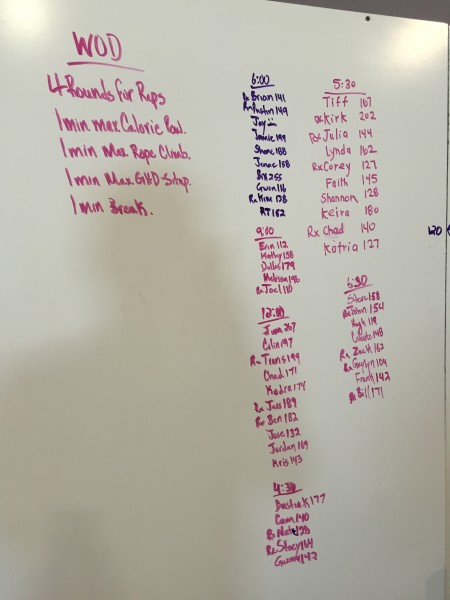 WOD
4 Rounds for Reps
1 min max Calorie Row.
1 min Max Rope Climb.
1 min Max GHD-Situp.
1 min Break.
6:00
Rx Brian 141
Rx Justin 149
Joy
Jamie 199
Shane 188
158
Bill 255
Gwen 116
Rx Kim 128
182
9:00
Erin 112
Kathy 158
179
Melissa
Rx Joel 110
12:00
Juan 207
Colin 197
Rx Travis 199
Chad 171
Kedra 174
Rx Jass 189
Rx Ben 182
Jose 132
Jordan 189
Kris 143
4:30
177
140
B.
Rx Stacy 164
142
5:30
Tiff 167
Rx Kirk 202
Rx Julia 144
Lynda 162
Rx Corey 127
Faith 145
Shannon 128
Keira 180
Rx Chad 140
Katria 127
6:30
Steve 158
Rx John 154
Hugh 119
148
Rx Zack 162
Rx Gaylyn 104
Frank 142
Rx Bill 171
120